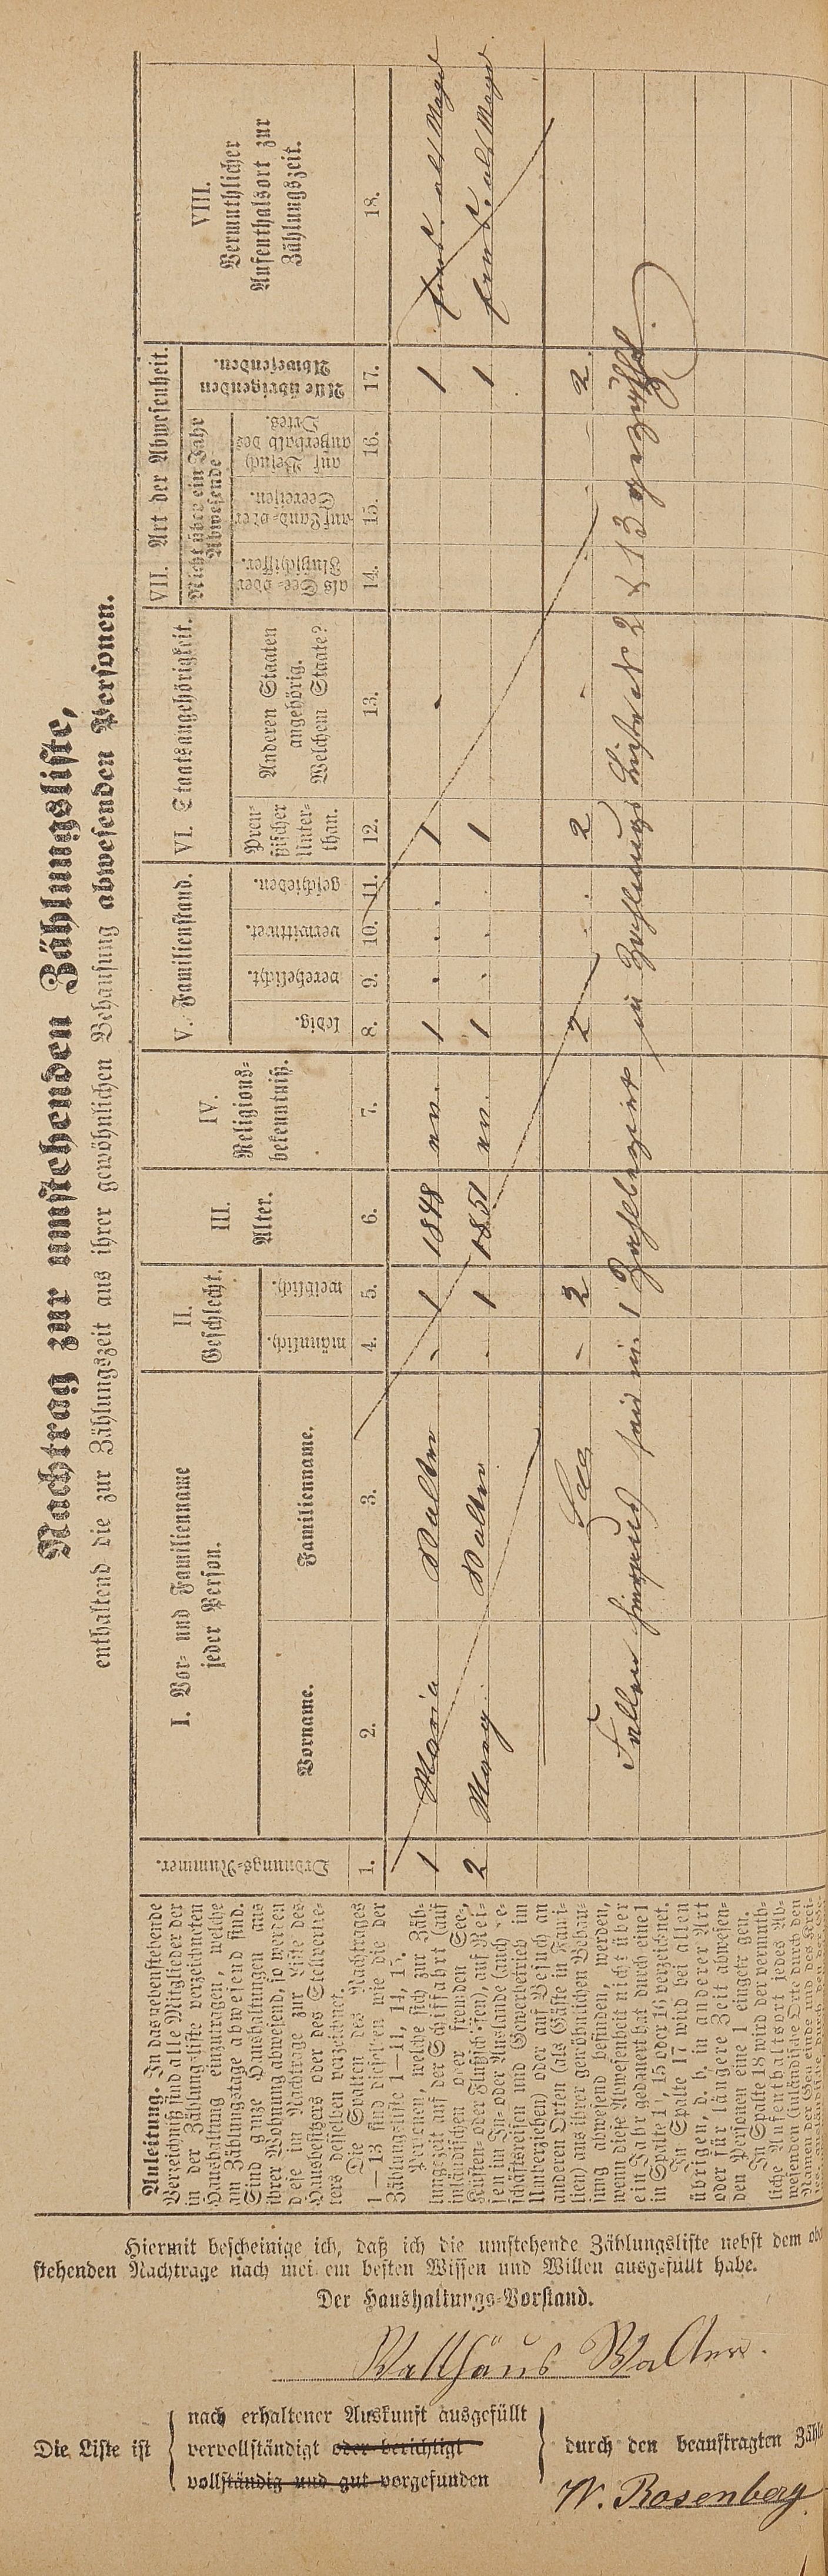 Nachtrag zur umstehenden Zählungsliste,
enthaltend die zur Zählungszeit aus ihrer gewöhnlichen Behausung abwesenden Personen.
Anleitung. In das nebenstehende
Verzeichniß sind alle Mitglieder der
in der Zählungsliste verzeichneten
Haushaltung einzutragen, welche
am Zählungstage abwesend sind.
Sind ganze Haushaltungen aus
ihrer Wohnung abwesend, so werden
diese im Nachtrage zur Liste des
Hausbesitzers oder des Stellvertre-
ters desselben verzeichnet.
Die Spalten des Nachtrages
1—13 sind dieselben wie die der
Zählungsliste 1—11, 14, 15.
Personen, welche sich zur Zäh-
lungszeit auf der Schiffahrt (auf
inländischen oder fremden See-,
Küsten- oder Flußschiffen), auf Rei-
sen im In- oder Auslande (auch Ge-
schäftsreisen und Gewerbetrieb im
Umherziehen) oder auf Besuch an
anderen Orten (als Gäste in Fami-
lien) aus ihrer gewöhnlichen Behau-
sung abwesend befinden, werden,
wenn diese Abwesenheit nicht über
ein Jahr gedauert hat durch eine 1
in Spalte 14, 15 oder 16 verzeichnet.
In Spalte 17 wird bei allen
übrigen, d. h. in anderer Art
oder für längere Zeit abwesen-
den Personen eine 1 eingetragen.
In Spalte 18 wird der vermuth-
liche Aufenthaltsort jedes Ab-
wesenden (inländische Orte durch den
Namen der Gemeinde und des Krei-
Ordnungs-Nummer.
I. Vor- und Familienname
jeder Person.
Vorname.
Familienname.
II.
Geschlecht.
männlich.
weiblich.
III.
Alter.
IV.
Religions-
bekenntniß.
V. Familienstand.
ledig.
verehelicht.
verwittwet.
geschieden.
VI. Staatsangehörigkeit.
Preu-
ßischer
Unter-
than.
Anderen Staaten
angehörig.
Welchem Staate?
VII. Art der Abwesenheit.
Nicht über ein Jahr
Abwesende
als See- oder
Flußschiffer.
auf Land- oder
Seereisen.
auf Besuch
außerhalb des
Ortes.
Alle übrigenden
Abwesenden.
VIII.
Vermuthlicher
Aufenthaltsort zur
Zählungszeit.
1. 2. 3. 4. 5. 6. 7. 8. 9. 10. 11. 12. 13. 14. 15. 16. 17. 18.
1 Maria Walter - 1 1848 ev. 1 . . . 1 . 1 als Magd
2 Marg. Walter . 1 1851 ev. 1 . . . 1 1 als Magd
Sa - 2 2 . . . 2 - - - - 2
Fallen hinweg sind in Zählungs Liste No 2 & 13 gezählt.
Hiermit bescheinige ich, daß ich die umstehende Zählungsliste nebst dem
stehenden Nachtrage nach meinem besten Wissen und Willen ausgefüllt habe.
Der Haushaltungs-Vorstand.
Matthäus Walter.
Die Liste ist
nach erhaltener Auskunft ausgefüllt
vervollständigt oder berichtigt
vollständig und gut vorgefunden
durch den beauftragten
W. Rosenberg